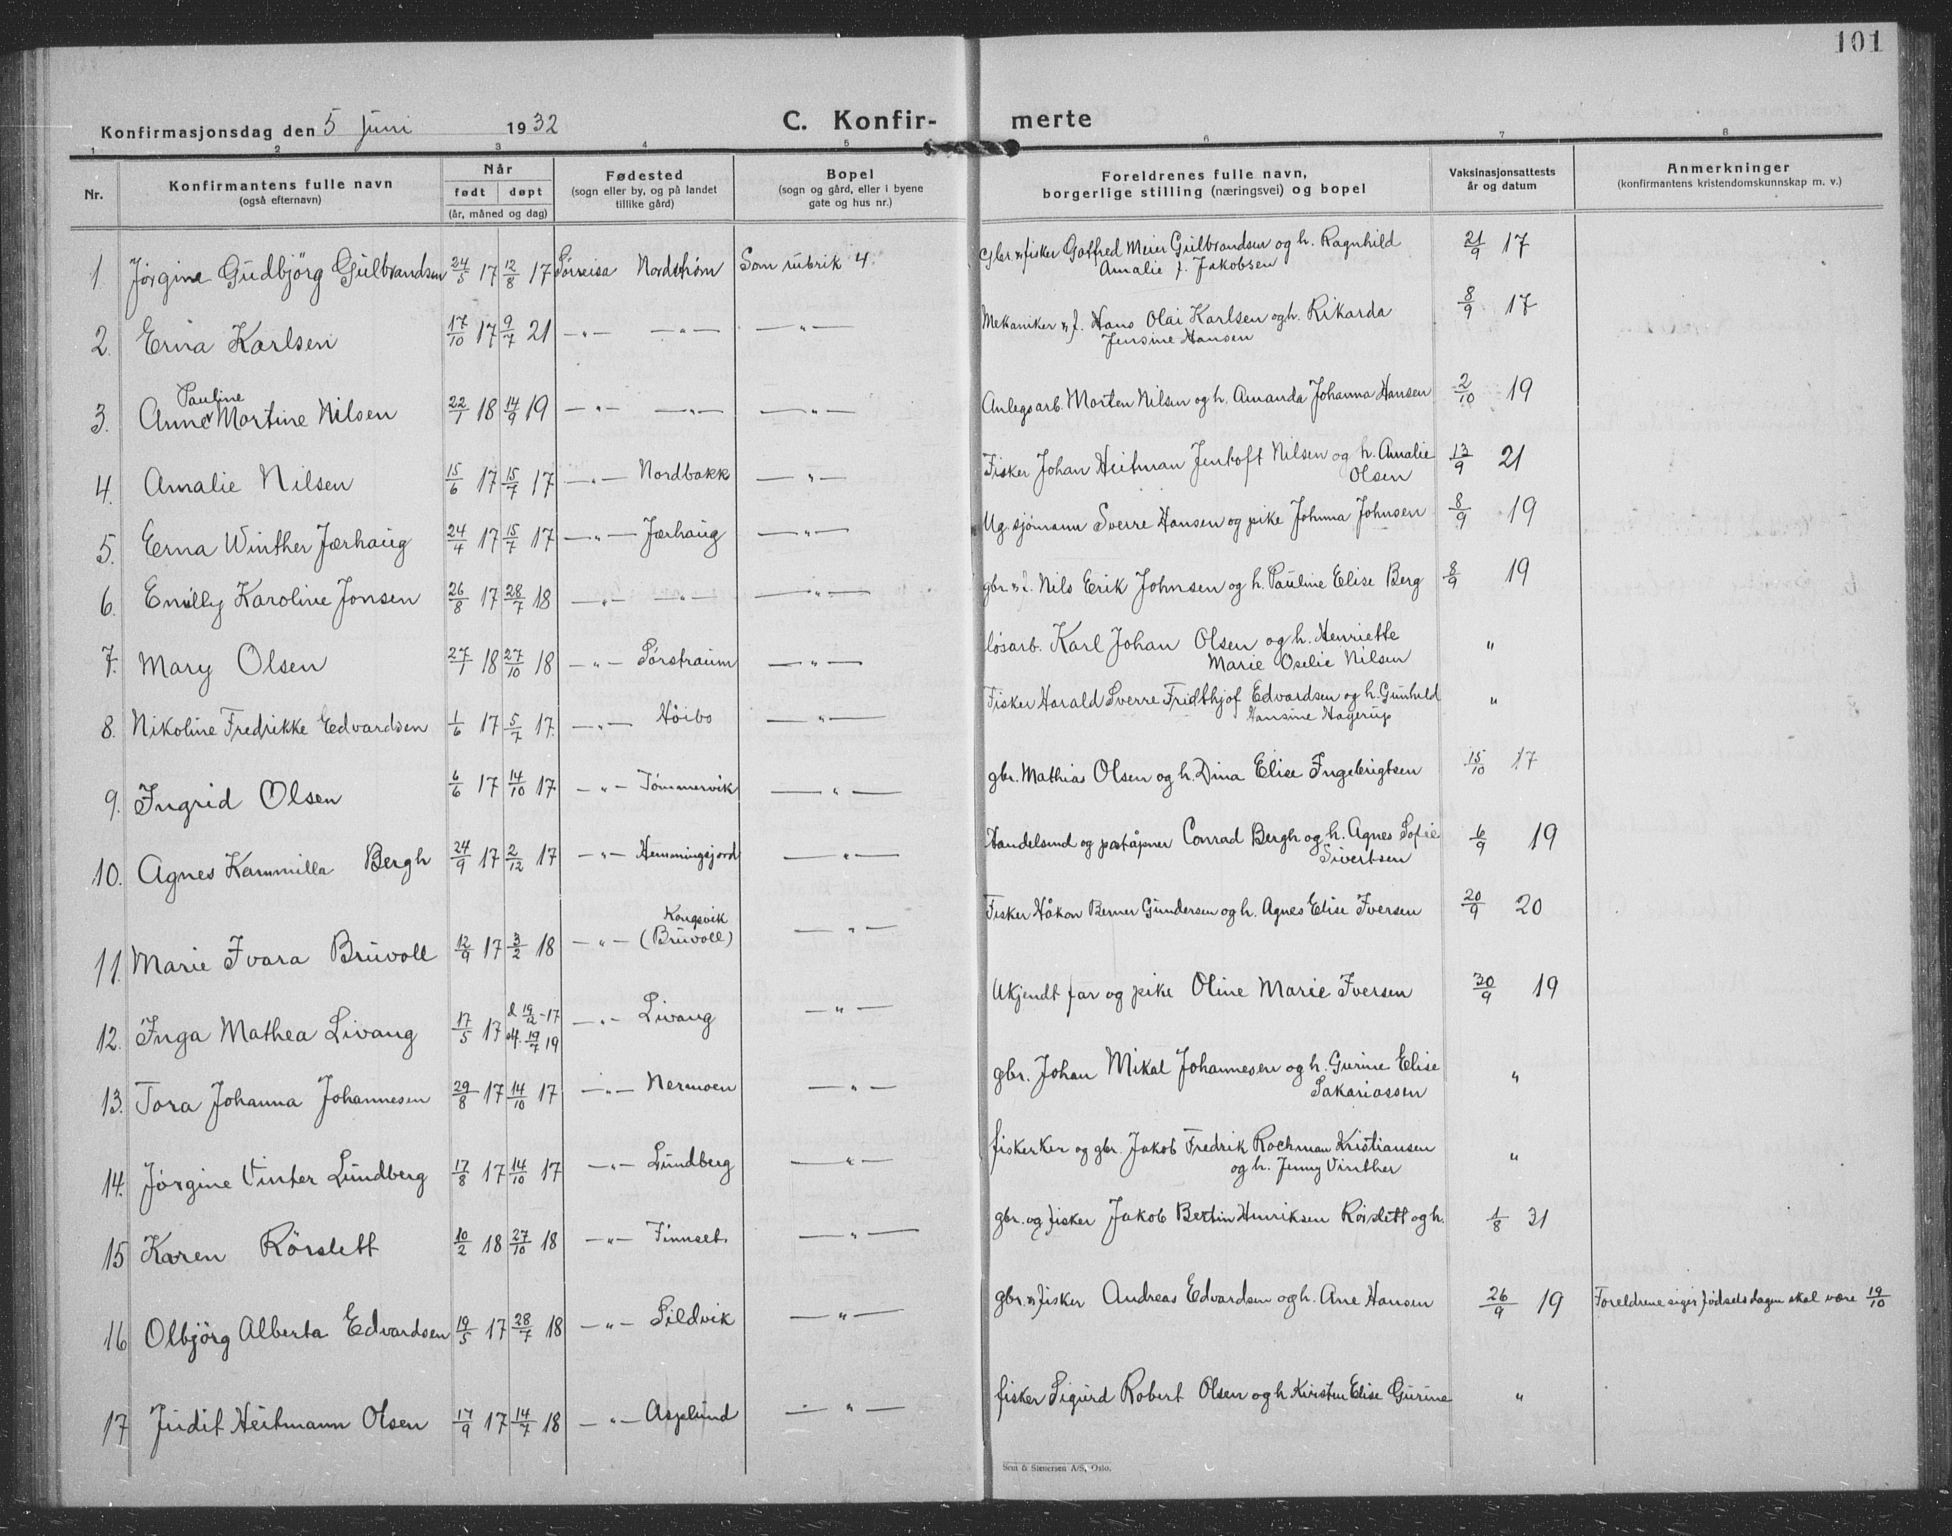 101
Konfirmasjonsdag den 5 Juni 1932
C. Konfir- merte
1 2 3 4 5 6 7 8
Nr.
Konfirmantens fulle navn
(også efternavn)
Når
født døpt
(år, måned og dag)
Fødested
(sogn eller by, og på landet
tillike gård)
Bopel
(sogn og gård, eller i byene
gate og hus nr.)
Foreldrenes fulle navn,
borgerlige stilling (næringsvei) og bopel
Vaksinasjonsattests
år og datum
Anmerkninger
(konfirmantens kristendomskunnskap m. v.)
1. Jörgine Gudbjörg Gulbrandsen 24/5 17 12/8 17 Sörreisa Nordstrøm Som rubrik 4. Gbr. og fisker Gotfred Meier Gulbrandsen og h. Ragnhild 21/9 17
Amalie f. Jakobsen
2. Erna Karlsen 17/10 17 9/7 21 —"— —"— —"— Mekaniker og f. Hans Olai Karlsen og h. Rikarda 8/9 17
Jensine Hansen
Pauline
3. Anne Martine Nilsen 22/1 18 14/9 19 —"— —"— —"— Anlegsarb. Morten Nilsen og h. Amanda Johanna Hansen 2/10 19
4. Amalie Nilsen 15/6 17 15/7 17 —"— Nordbakk —"— Fisker Johan Heitman Jentoft Nilsen og h. Amalie 13/9 21
Olsen
5. Erna Winther Jærhaug 24/4 17 15/7 17 —"— Jærhaug —"— Ug. sjömann Sverre Hansen og pike Johnna Johnsen 8/9 19
6. Emilly Karoline Jonsen 26/8 17 28/7 18 —"— —"— —"— gbr. og f. Nils Erik Johnsen og h. Pauline Elise Berg 8/9 19
7. Mary Olsen 27/1 18 27/10 18 —"— Sørstraum —"— løsarb. Karl Johan Olsen og h. Henriette "
Marie Oselie Nilsen
8. Nikoline Fredrikke Edvardsen 1/6 17 5/7 17. —"— Höibo —"— Fisker Harald Sverre Fridthjof Edvardsen og h. Gunhild "
Hansine Hagerup
9. Ingrid Olsen 6/6 17 14/10 17 —"— Tømmervik —"— gbr. Mathias Olsen og h. Dina Elise Ingebrigtsen 15/10 17
10. Agnes Kammilla Bergh 24/9 17 2/12 17 —"— Hemmingsjord —"— Handelsmd og poståpner Conrad Bergh og h. Agnes Sofie 6/9 19
Sivertsen
Kongsvik
11. Marie Ivara Bruvoll 12/9 17 3/2 18 —"— (Bruvoll) —"— Fisker Håkon Berner Gundersen og h. Agnes Elise Iversen 20/9 20
12. Inga Mathea Livang 17/5 17 d 19/12-17 —"— Livang —"— Ukjendt far og pike Oline Marie Iversen 30/9 19
stf. 19/7 19
13. Tora Johanna Johannesen 29/8 17 14/10 17 —"— Nermoen —"— gbr. Johan Mikal Johannesen og h. Gurine Elise "
Sakariassen
14. Jørgine Vinter Lundberg 17/8 17 14/10 17 —"— Lundberg —"— fiskerker og gbr. Jakob Fredrik Rochman Kristiansen "
og h. Jenny Vinther
15 Karen Rörslett 10/2 18 27/10 18 —"— Finnset. —"— gbr. og fisker Jakob Bertin Henriksen Rörslett og h. 1/8 31
16 Olbjörg Alberta Edvardsen 19/5 17 28/7 18 —"— Sildvik —"— gbr. og fisker Andreas Edvardsen og h. Ane Hansen 26/9 19 Foreldrene siger fødselsdagen skal være 19/10
17 Judit Heitmann Olsen 17/9 17 14/7 18 —"— Asplund —"— fisker Sigurd Robert Olsen og h. Kirsten Elise Gurine "
Sem & Stenersen A/S, Oslo.